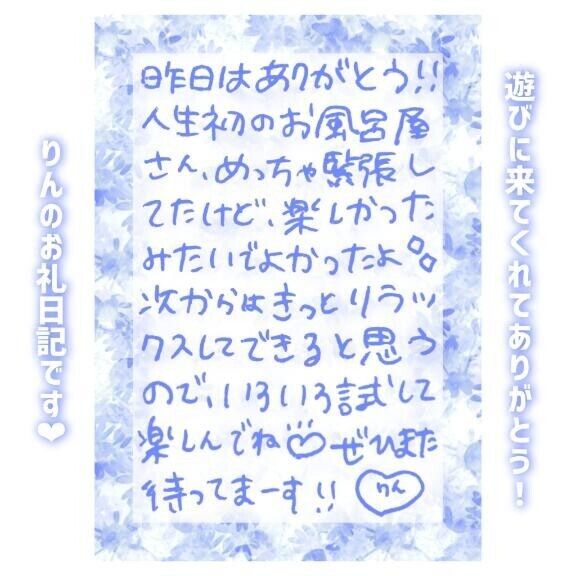 遊びに来てくれてありがとう！
昨日はありがとう!!
人生初のお風呂屋
さん、めっちゃ緊張し
てたけど、楽しかった
みたいでよかったよ
次からはきっとリラッ
クスしてできると思う
ので、いろいろ試して
楽しんでね♡ぜひまた
待ってまーす!!
りん
りんのお礼日記です❤